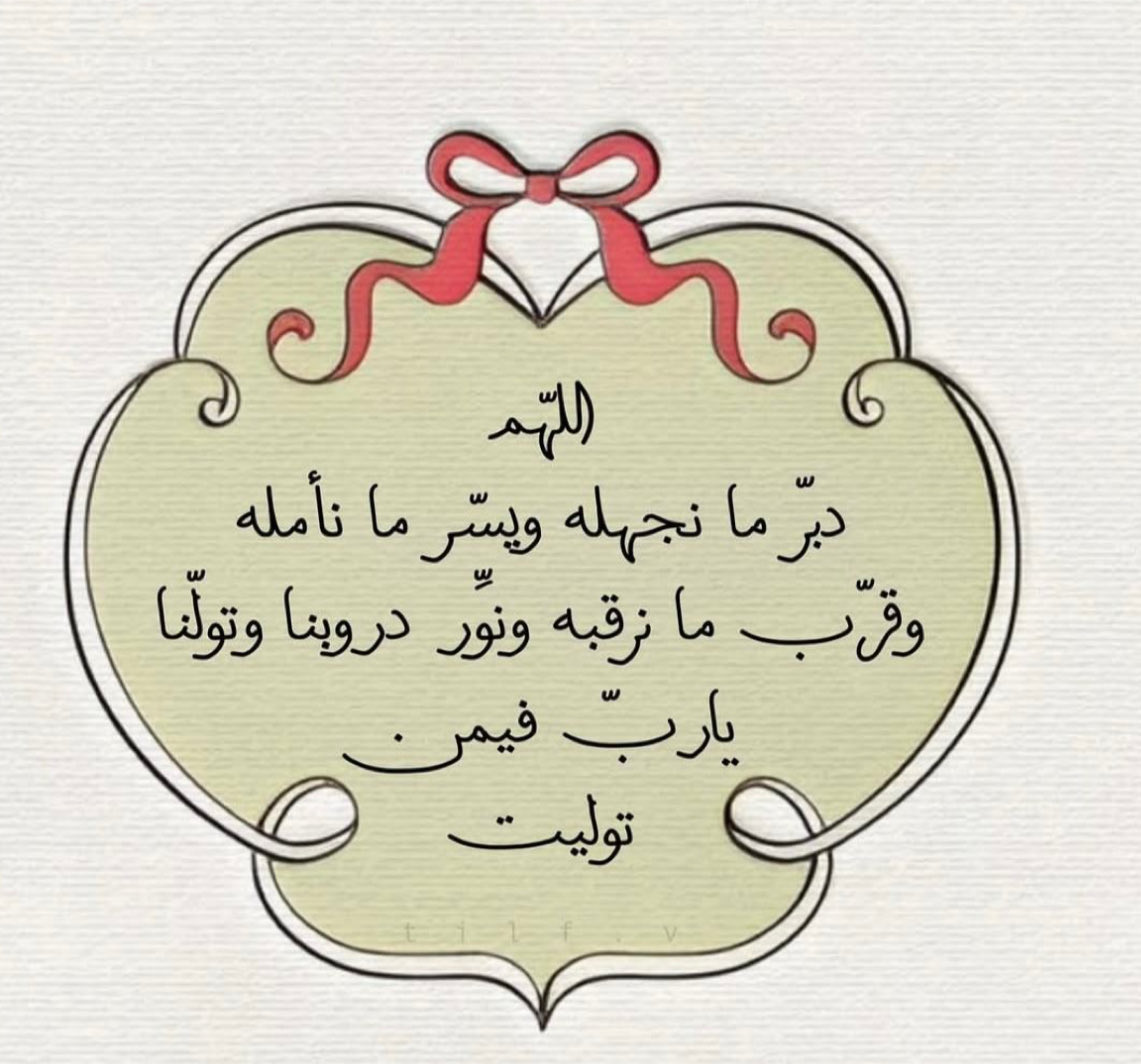 اللهّم
دبرّ ما نجهله ويسّر ما نأمله
وقرّب ما نرقبه ونوِّر دروبنا وتولّنا
يارب​ّ فيمن
توليت
tilf.v